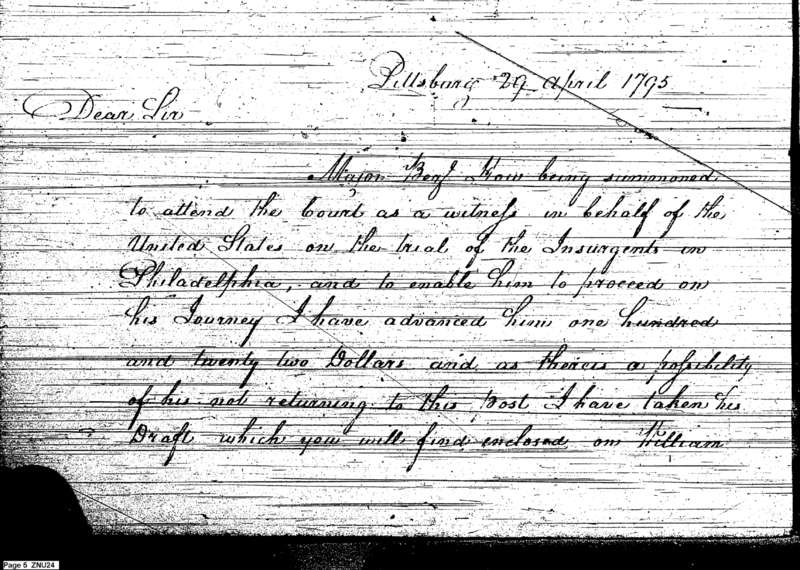 Pittsburg 29 April 1795
Dear Sir
Major being summoned
to attend the Court as a witness in behalf of the
United States on the trial of the Insurgents in
Philadelphia, and to enable him to proceed on
his Journey I have advanced him one hundred
and twenty two Dollars and as there is a possibility
of his not returning to this post I have taken his
Draft which you will find enclosed on William
Page 5 ZNU24